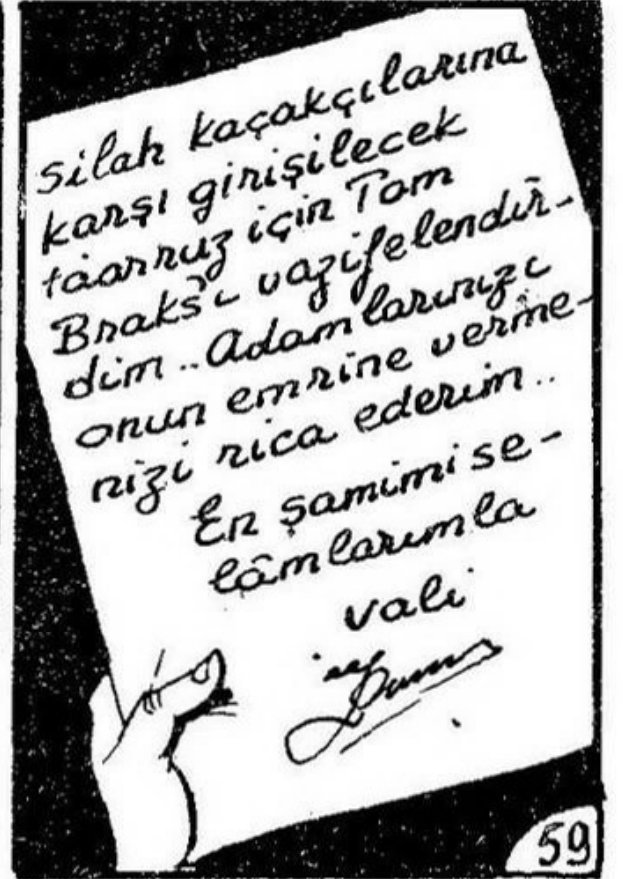 Silah kaçakçılarına
karşı girişilecek
taarruz için Tom
Braks'ı vazifelendir-
dim.. Adamlarınızı
onun emrine verme-
nizi rica ederim..
En şamimi se-
lâmlarımla
vali
59